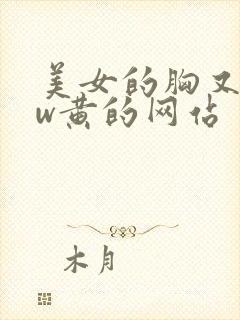 美女的胸又
w黄的网佔
木月